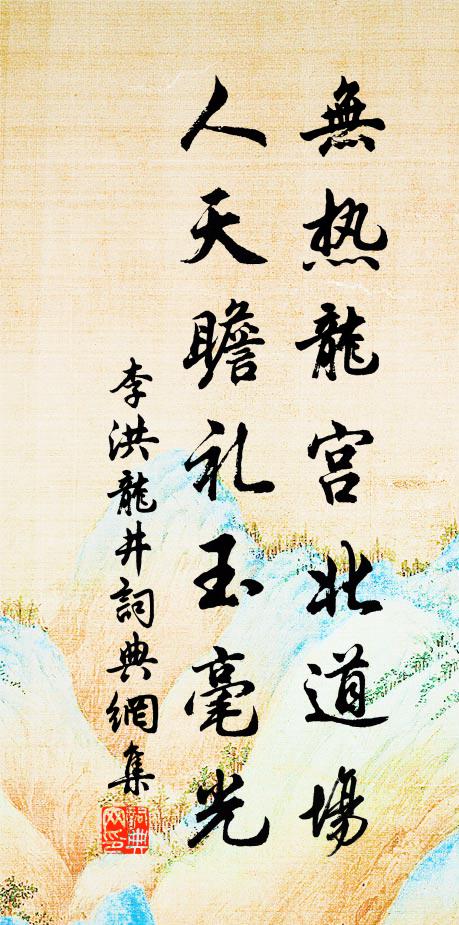 無热龍宫此道場
人天瞻礼玉毫光
李洪龍井詞典網集
詞典
网印